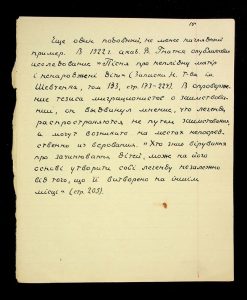 15
Еще один подобный, не менее наглядный
пример. В 1922 г. акад. В. Гнатюк опубликовал
исследование «Пісня про неплідну матір
і ненароджені діти» (Записки Н. Т-ва ім.
Шевченка, том 133, стр. 173-224). В опровержение
тезиса миграционистов о заимствовании,
он выдвинул мнение, что легенды
распространяются не путем заимствования,
а могут возникать на местах непосредственно
из верования. «Хто знає вірування
про зачинювання дітей, може на його
основі утворити собі легенду незалежно
від того, що її витворено на іншім
місці» (стр. 205).